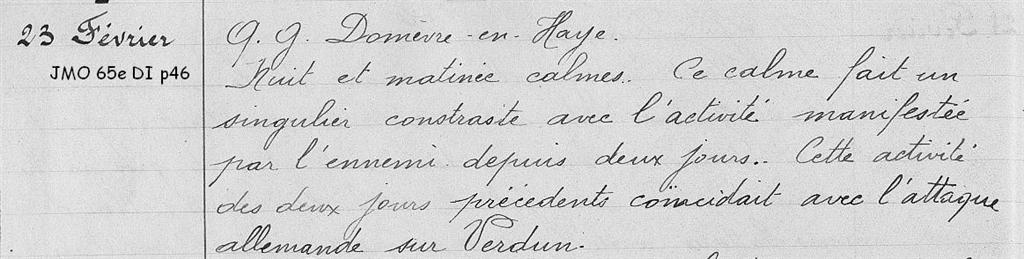 23 Février
JMO 65e DI p46
Q. G. Domèvre-en-Haye.
Nuit et matinée calmes. Ce calme fait un
singulier constraste avec l'activité manifestée
par l'ennemi depuis deux jours.. Cette activité
des deux jours précédents coïncidait avec l'attaque
allemande sur Verdun.